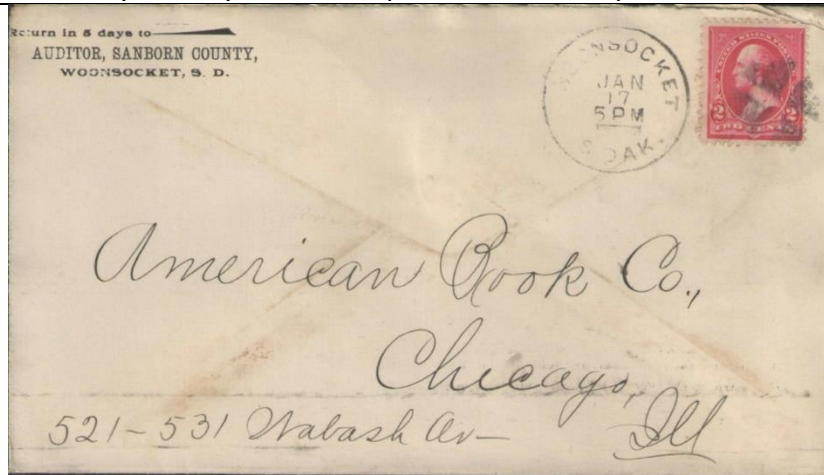 Return in 5 days to
AUDITOR, SANBORN COUNTY,
WOONSOCKET, S. D.
WOONSOCKET
JAN
17
5 PM
S. DAK.
UNITED STATES POSTAGE
2 2
TWO CENTS
American Book Co.,
Chicago,
Ill
521-531 Wabash Av-